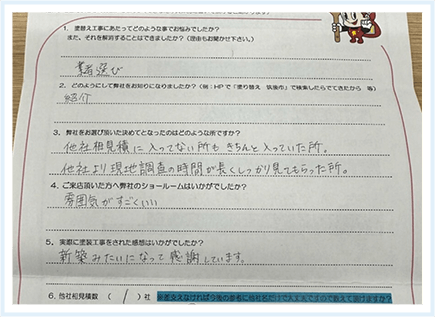 1. 塗替え工事にあたってどのような事でお悩みでしたか?
また、それを解消することはできましたか?(理由もお聞かせ下さい。)
業者選び
2. どのようにして弊社をお知りになりましたか?(例:HPで「塗り替え 筑後市」で検索したらでてきたから 等)
紹介
3. 弊社をお選び頂いた決めてとなったのはどのような所ですか?
他社相見積に入ってない所もきちんと入っていた所。
他社より現地調査の時間が長くしっかり見てもらった所。
4. ご来店頂いた方へ弊社のショールームはいかがでしたか?
雰囲気がすごくいい
5. 実際に塗装工事をされた感想はいかがでしたか?
新築みたいになって感謝しています。
6. 他社相見積数 ( 1 ) 社 ※差支えなければ今後の参考に他社名だけで大丈夫ですので教えて頂けますか?